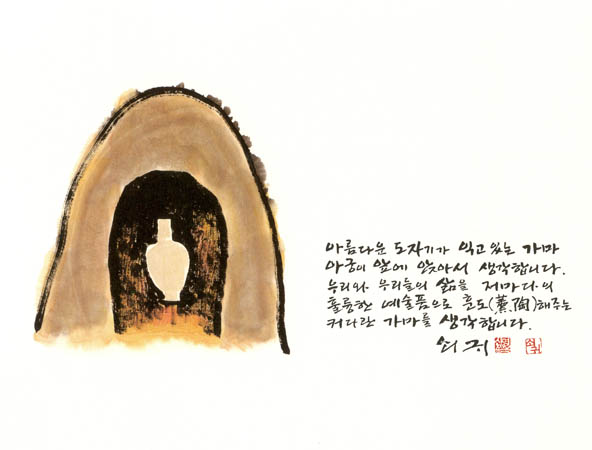 아름다운 도자기가 익고 있는 가마
아궁이 앞에 앉아서 생각합니다.
우리와 우리들의 삶을 저마다의
훌륭한 예술품으로 훈도(薰陶)해주는
커다란 가마를 생각합니다.
쇠귀